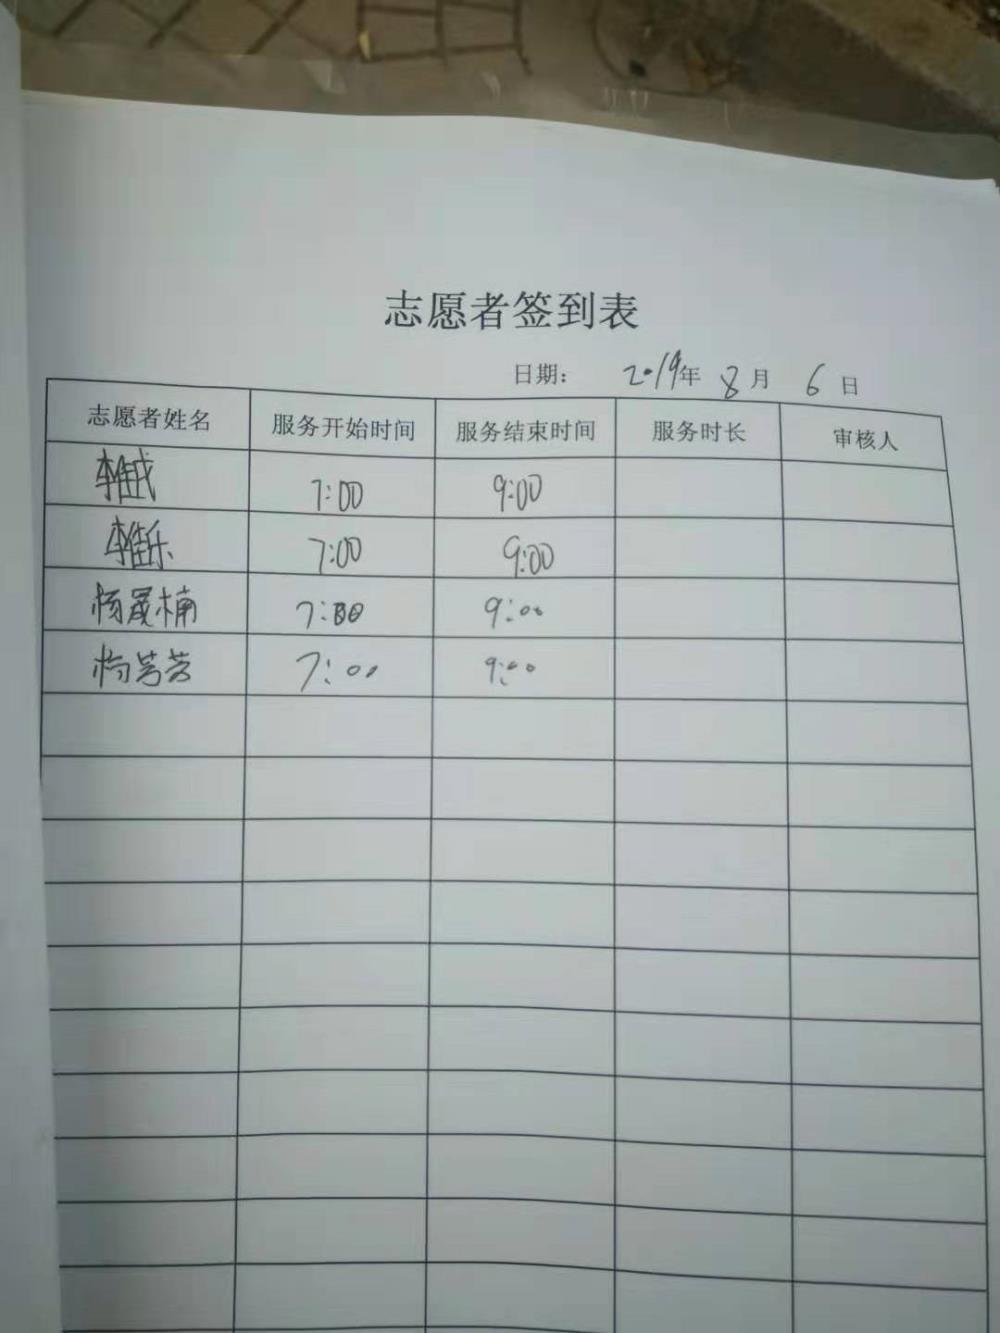 志愿者签到表
日期: 2019年 8月 6日
志愿者姓名 服务开始时间 服务结束时间 服务时长 审核人
7:00 9:00
李佳乐 7:00 9:00
杨晟楠 7:00 9:00
杨芳芳 7:00 9:00